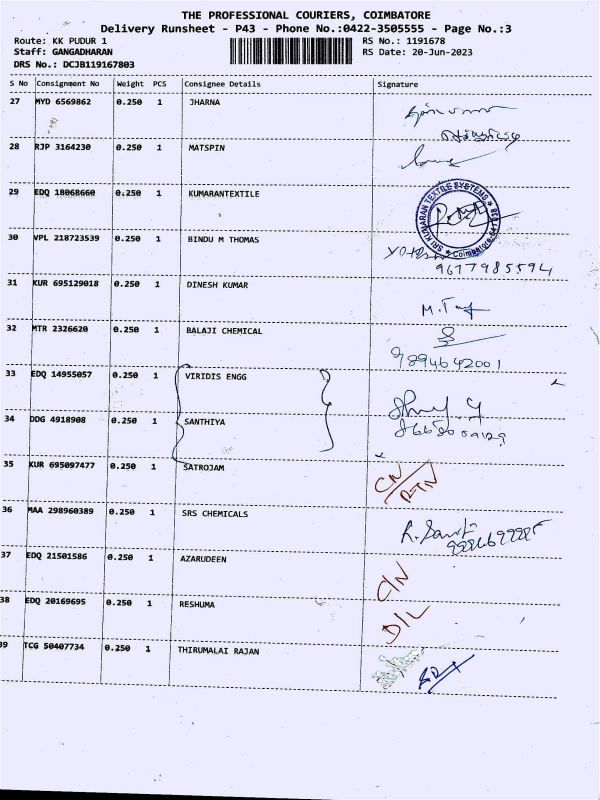 THE PROFESSIONAL COURIERS, COIMBATORE
Delivery Runsheet - P43 - Phone No.:0422-3505555 - Page No.:3
Route: KK PUDUR 1 RS No.: 1191678
Staff: GANGADHARAN RS Date: 20-Jun-2023
DRS No.: DCJB119167803
S No Consignment No Weight PCS Consignee Details Signature
27 MYD 6569862 0.250 1 JHARNA
28 RJP 3164230 0.250 1 MATSPIN
29 EDQ 18068660 0.250 1 KUMARANTEXTILE
SRI KUMARAN TEXTILE SYSTEMS
Coimbatore
30 VPL 218723539 0.250 1 BINDU M THOMAS
9617985594
31 KUR 695129018 0.250 1 DINESH KUMAR
32 MTR 2326620 0.250 1 BALAJI CHEMICAL
9894642001
33 EDQ 14955057 0.250 1 VIRIDIS ENGG
34 DDG 4918908 0.250 1 SANTHIYA
35 KUR 695097477 0.250 1 SATROJAM
CN/RTN
36 MAA 298960389 0.250 1 SRS CHEMICALS
37 EDQ 21501586 0.250 1 AZARUDEEN
C/N
38 EDQ 20169695 0.250 1 RESHUMA
D/L
39 TCG 50407734 0.250 1 THIRUMALAI RAJAN